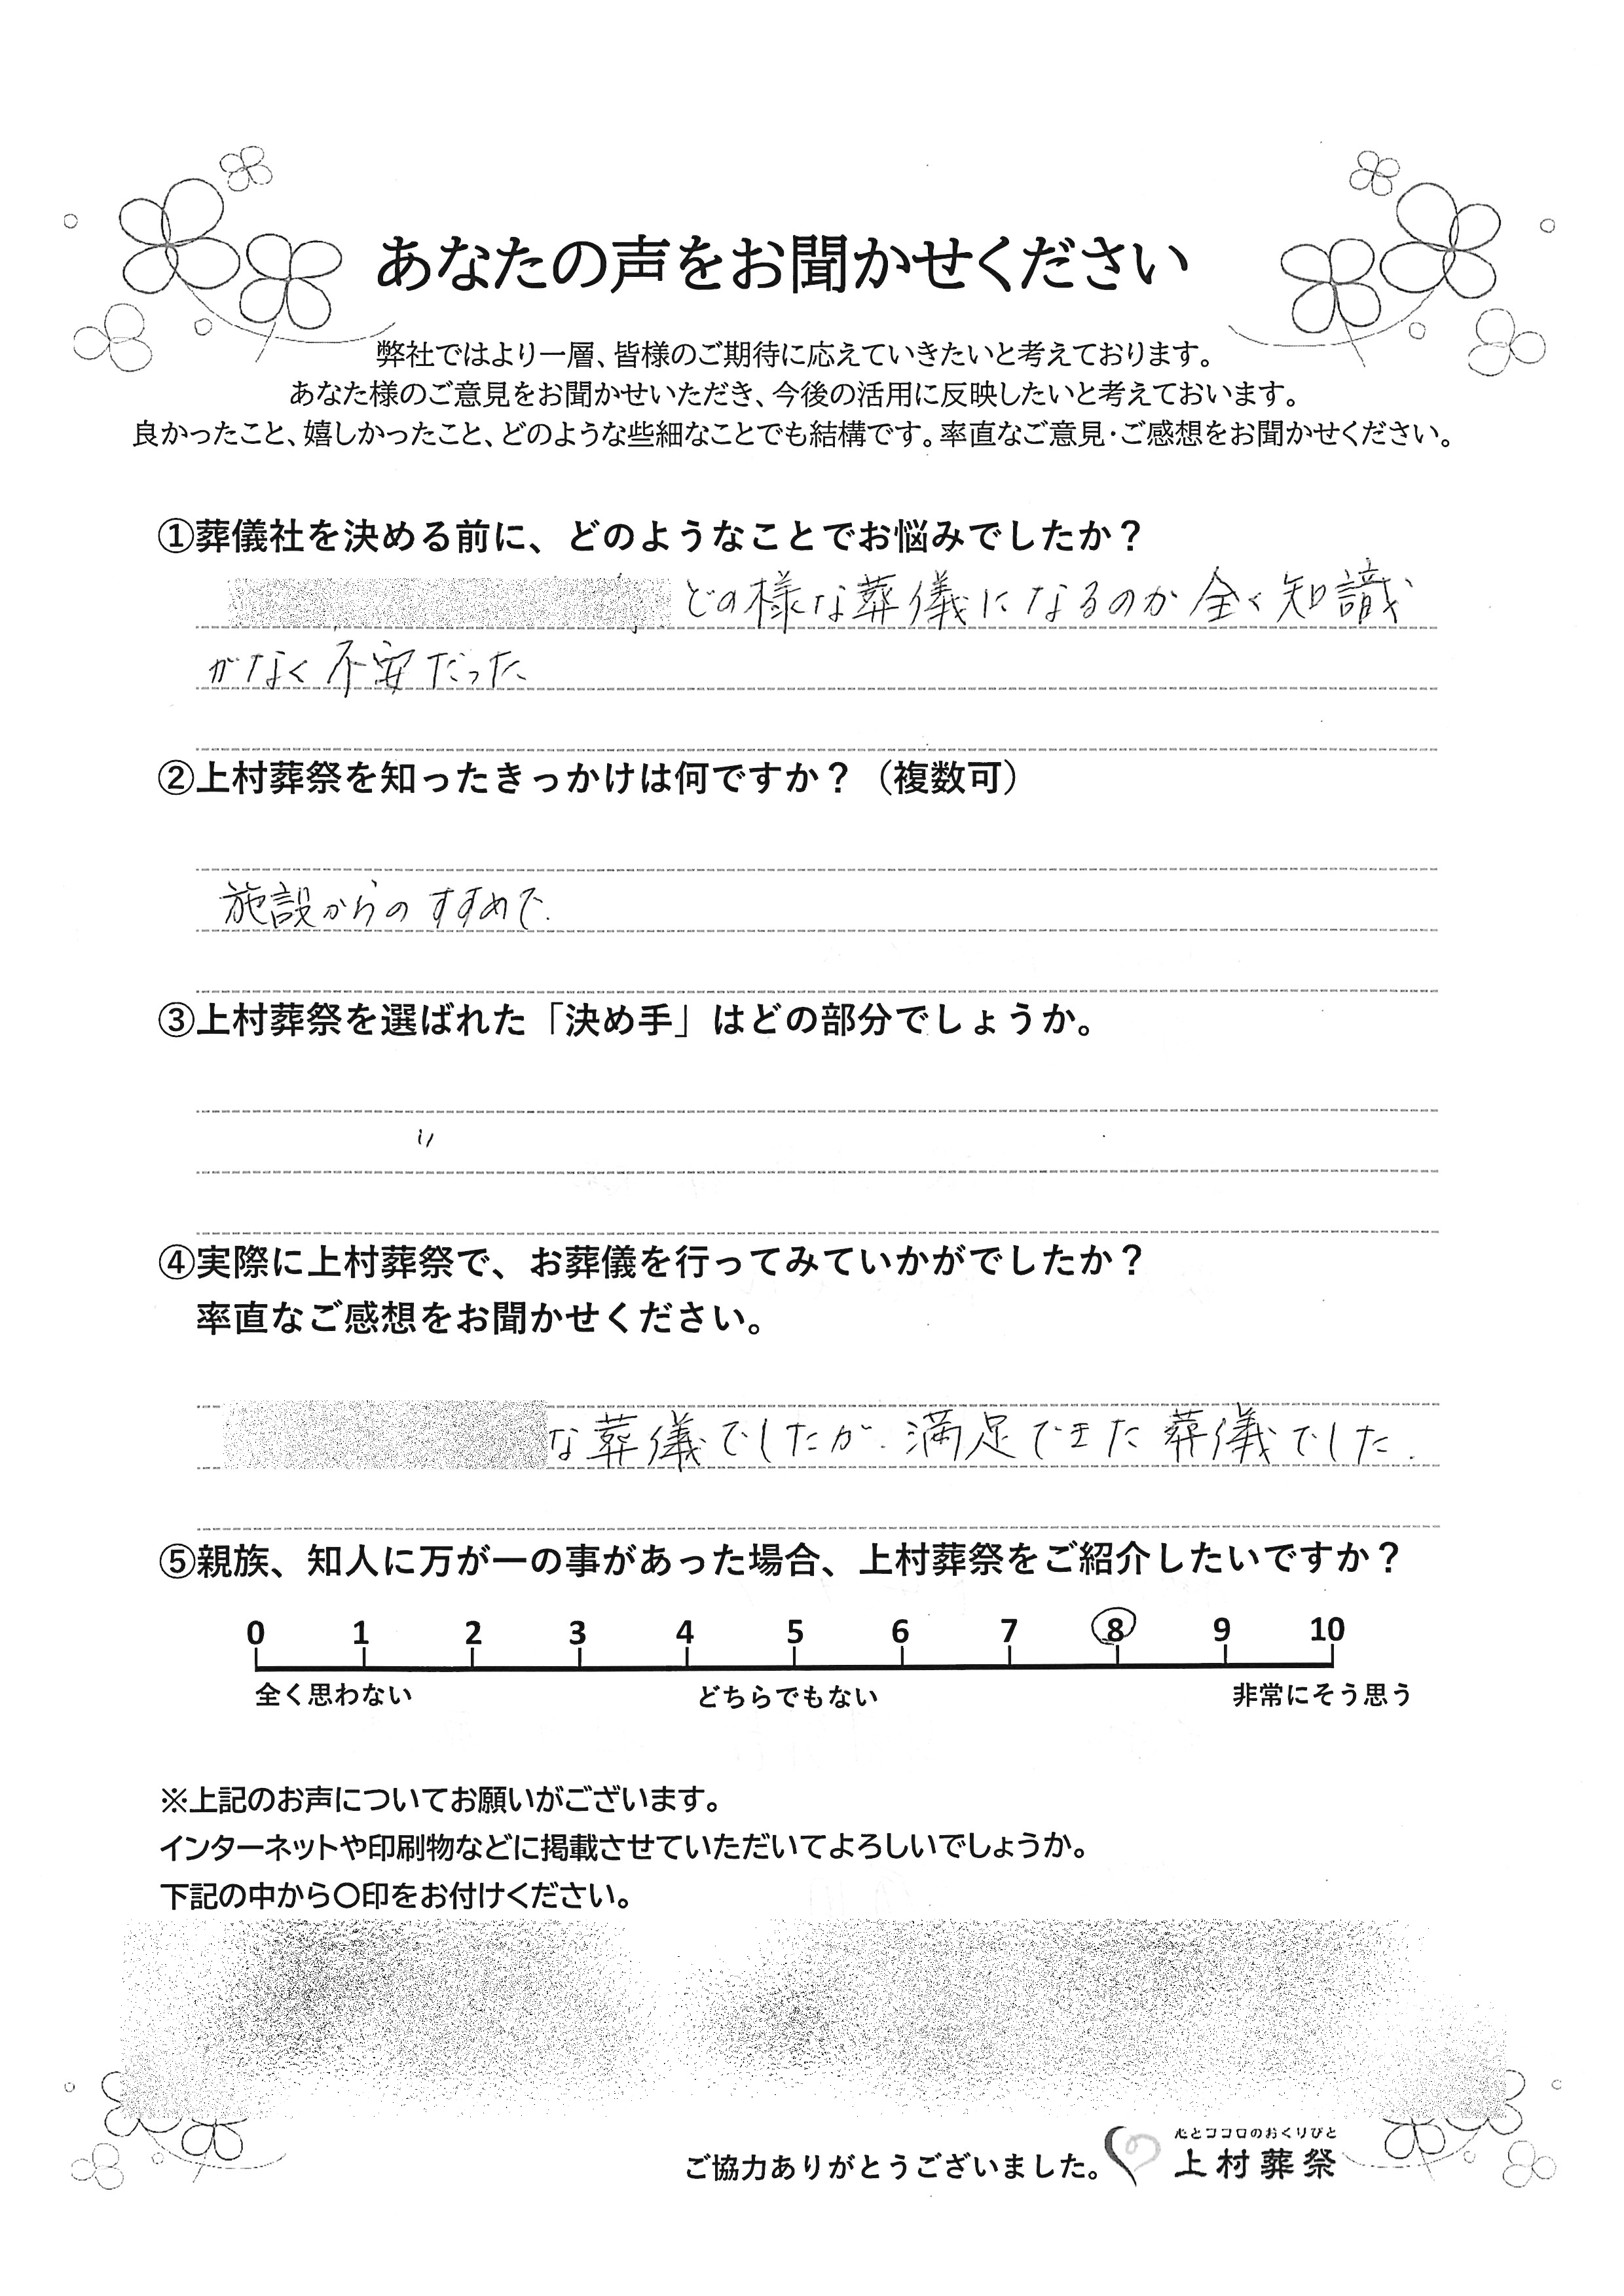 あなたの声をお聞かせください
弊社ではより一層、皆様のご期待に応えていきたいと考えております。
あなた様のご意見をお聞かせいただき、今後の活用に反映したいと考えておいます。
良かったこと、嬉しかったこと、どのような些細なことでも結構です。率直なご意見・ご感想をお聞かせください。
①葬儀社を決める前に、どのようなことでお悩みでしたか？
どの様な葬儀になるのか全く知識
がなく不安だった
②上村葬祭を知ったきっかけは何ですか？（複数可）
施設からのすすめで.
③上村葬祭を選ばれた「決め手」はどの部分でしょうか。
〃
④実際に上村葬祭で、お葬儀を行ってみていかがでしたか？
率直なご感想をお聞かせください。
な葬儀でしたが、満足できた葬儀でした.
⑤親族、知人に万が一の事があった場合、上村葬祭をご紹介したいですか？
0 1 2 3 4 5 6 7 8 9 10
全く思わない どちらでもない 非常にそう思う
※上記のお声についてお願いがございます。
インターネットや印刷物などに掲載させていただいてよろしいでしょうか。
下記の中から〇印をお付けください。
心とココロのおくりびと
ご協力ありがとうございました。 上村葬祭